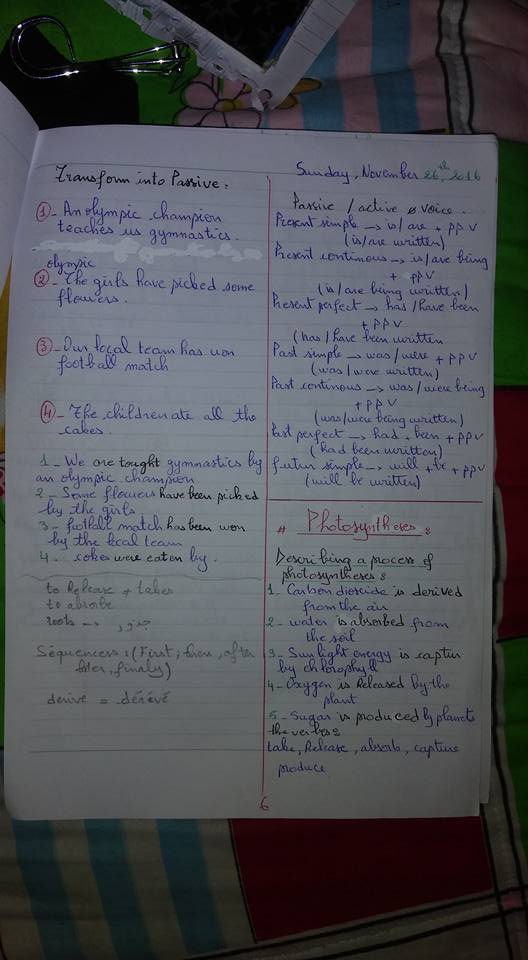 Transform into Passive :
① - An olympic champion
teaches us gymnastics.
olympic
② - The girls have picked some
flowers.
③ - Our local team has won
football match
④ - The children ate all the
cakes.
1 - We are tought gymnastics by
an olympic champion
2 - Some flowers have been picked
by the girls
3 - football match has been won
by the local team
4. cakes were eaten by.
to Release ≠ takes
to absorbe
roots → جذور
Séquencers : (First, then, after
later, finaly)
derive = dérivé
Sunday, November 26th, 2016
Passive / active voice.
Present simple → is/are + ppv
(is/are written)
Present continous → is/are being
+ ppv
(is/are being written)
Present perfect → has/have been
+ ppv
(has/have been written
Past simple → was/were + ppv
(was/were written)
Past continous → was/were being
+ ppv
(was/were being written)
Past perfect → had + been + ppv
(had been written)
futur simple → will + be + ppv
(will be written)
# Photosyntheses :
Describing a process of
photosyntheses :
1 - Carbon dioxcide is derived
from the air
2 - water is absorbed from
the soil
3 - Sunlight energy is captur
by chlorophyll
4 - Oxygen is Released by the
plant
5 - Sugar is produced by planets
the verbs :
take, Release, absorb, capture
produce
6